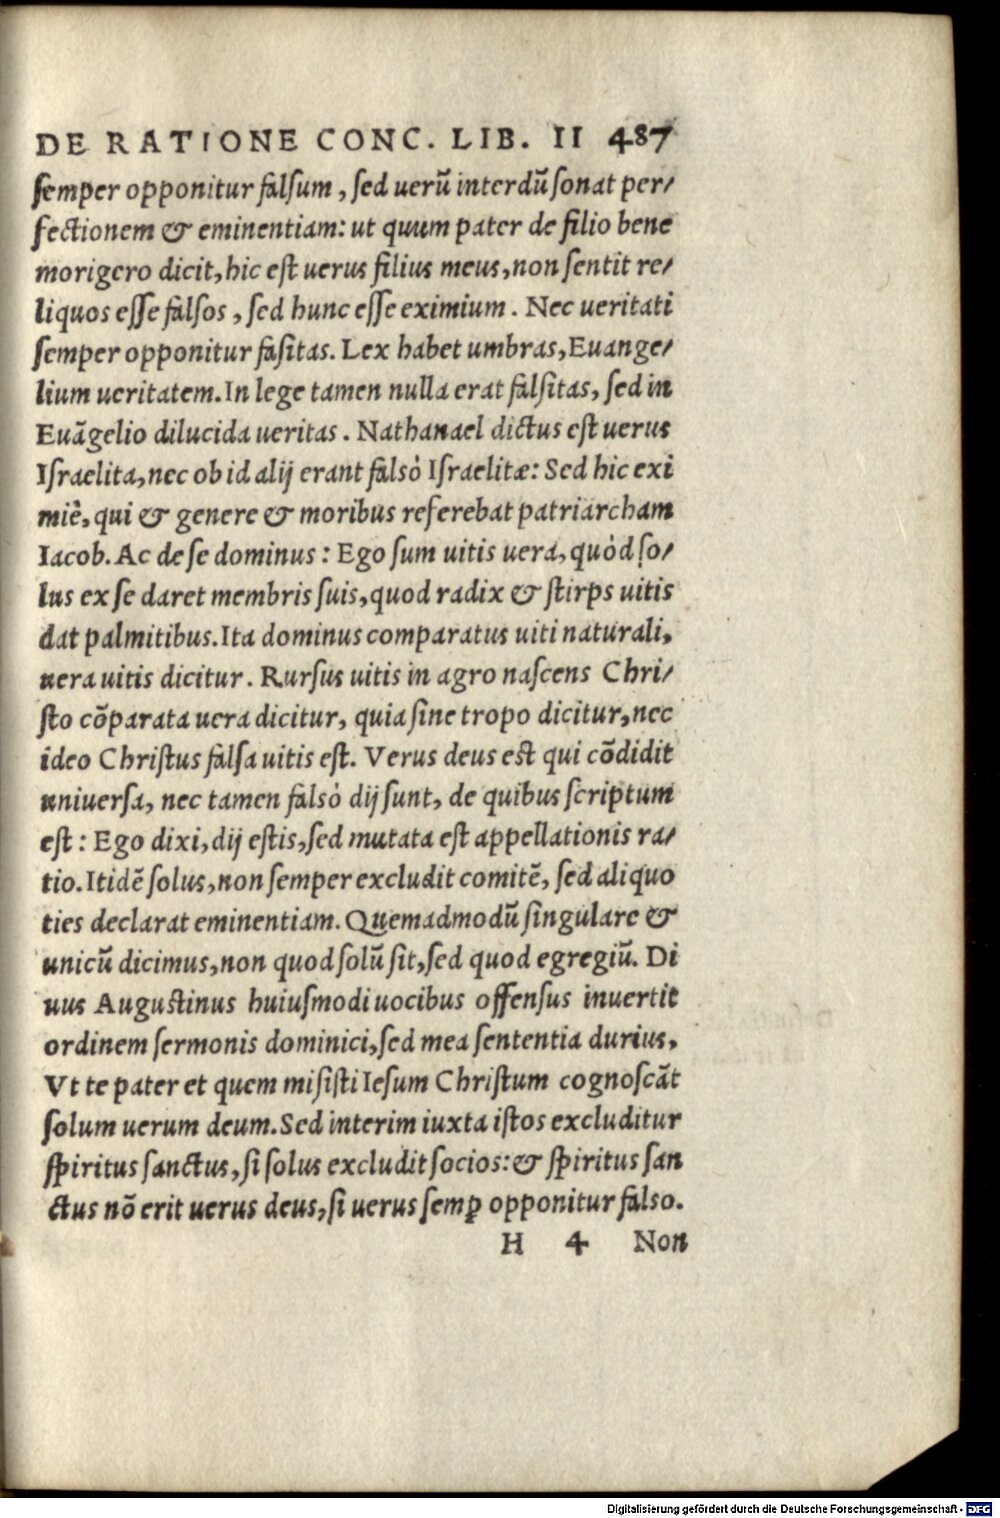 DE RATIONE CONC. LIB. II 487
semper opponitur falsum, sed uerũ interdũ sonat per/
fectionem & eminentiam: ut quum pater de filio bene
morigero dicit, hic est uerus filius meus, non sentit re/
liquos esse falsos, sed hunc esse eximium. Nec ueritati
semper opponitur fasitas. Lex habet umbras, Euange/
lium ueritatem. In lege tamen nulla erat falsitas, sed in
Euãgelio dilucida ueritas. Nathanael dictus est uerus
Israelita, nec ob id alij erant falsò Israelitæ: Sed hic exi
miè, qui & genere & moribus referebat patriarcham
Iacob. Ac de se dominus: Ego sum uitis uera, quòd so/
lus ex se daret membris suis, quod radix & stirps uitis
dat palmitibus. Ita dominus comparatus uiti naturali,
uera uitis dicitur. Rursus uitis in agro nascens Chri/
sto cõparata uera dicitur, quia sine tropo dicitur, nec
ideo Christus falsa uitis est. Verus deus est qui cõdidit
uniuersa, nec tamen falsò dij sunt, de quibus scriptum
est: Ego dixi, dij estis, sed mutata est appellationis ra/
tio. Itidẽ solus, non semper excludit comitẽ, sed aliquo
ties declarat eminentiam. Quemadmodũ singulare &
unicũ dicimus, non quod solũ sit, sed quod egregiũ. Di
uus Augustinus huiusmodi uocibus offensus inuertit
ordinem sermonis dominici, sed mea sententia durius,
Vt te pater et quem misisti Iesum Christum cognoscãt
solum uerum deum. Sed interim iuxta istos excluditur
spiritus sanctus, si solus excludit socios: & spiritus san
ctus nõ erit uerus deus, si uerus semꝑ opponitur falso.
H 4 Non
Digitalisierung gefördert durch die Deutsche Forschungsgemeinschaft - DFG